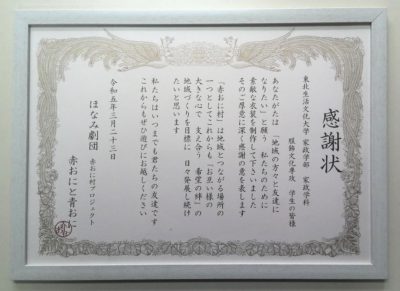 感謝状
東北生活文化大学 家政学部 家政学科
服飾文化専攻 学生の皆様
あなたがたは 「地域の方々と友達に
なりたい」と願う 私たちのために
素敵な衣装を制作して下さいました
そのご厚意に深く感謝の意を表します
「赤おに村」は地域とつながる場所の
一つとしてこれからも「お互い様の
大きな心で 支え合う 希望の絆」の
地域づくりを目標に 日々発展し続け
たいと思います
私たちはいつまでも君たちの友達です
これからもぜひ遊びにお越しください
令和五年三月二十三日
ほなみ劇団
赤おに村プロジェクト
赤おにと青おに